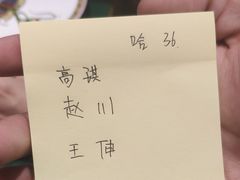 哈 36.
高琪
赵川
王伸